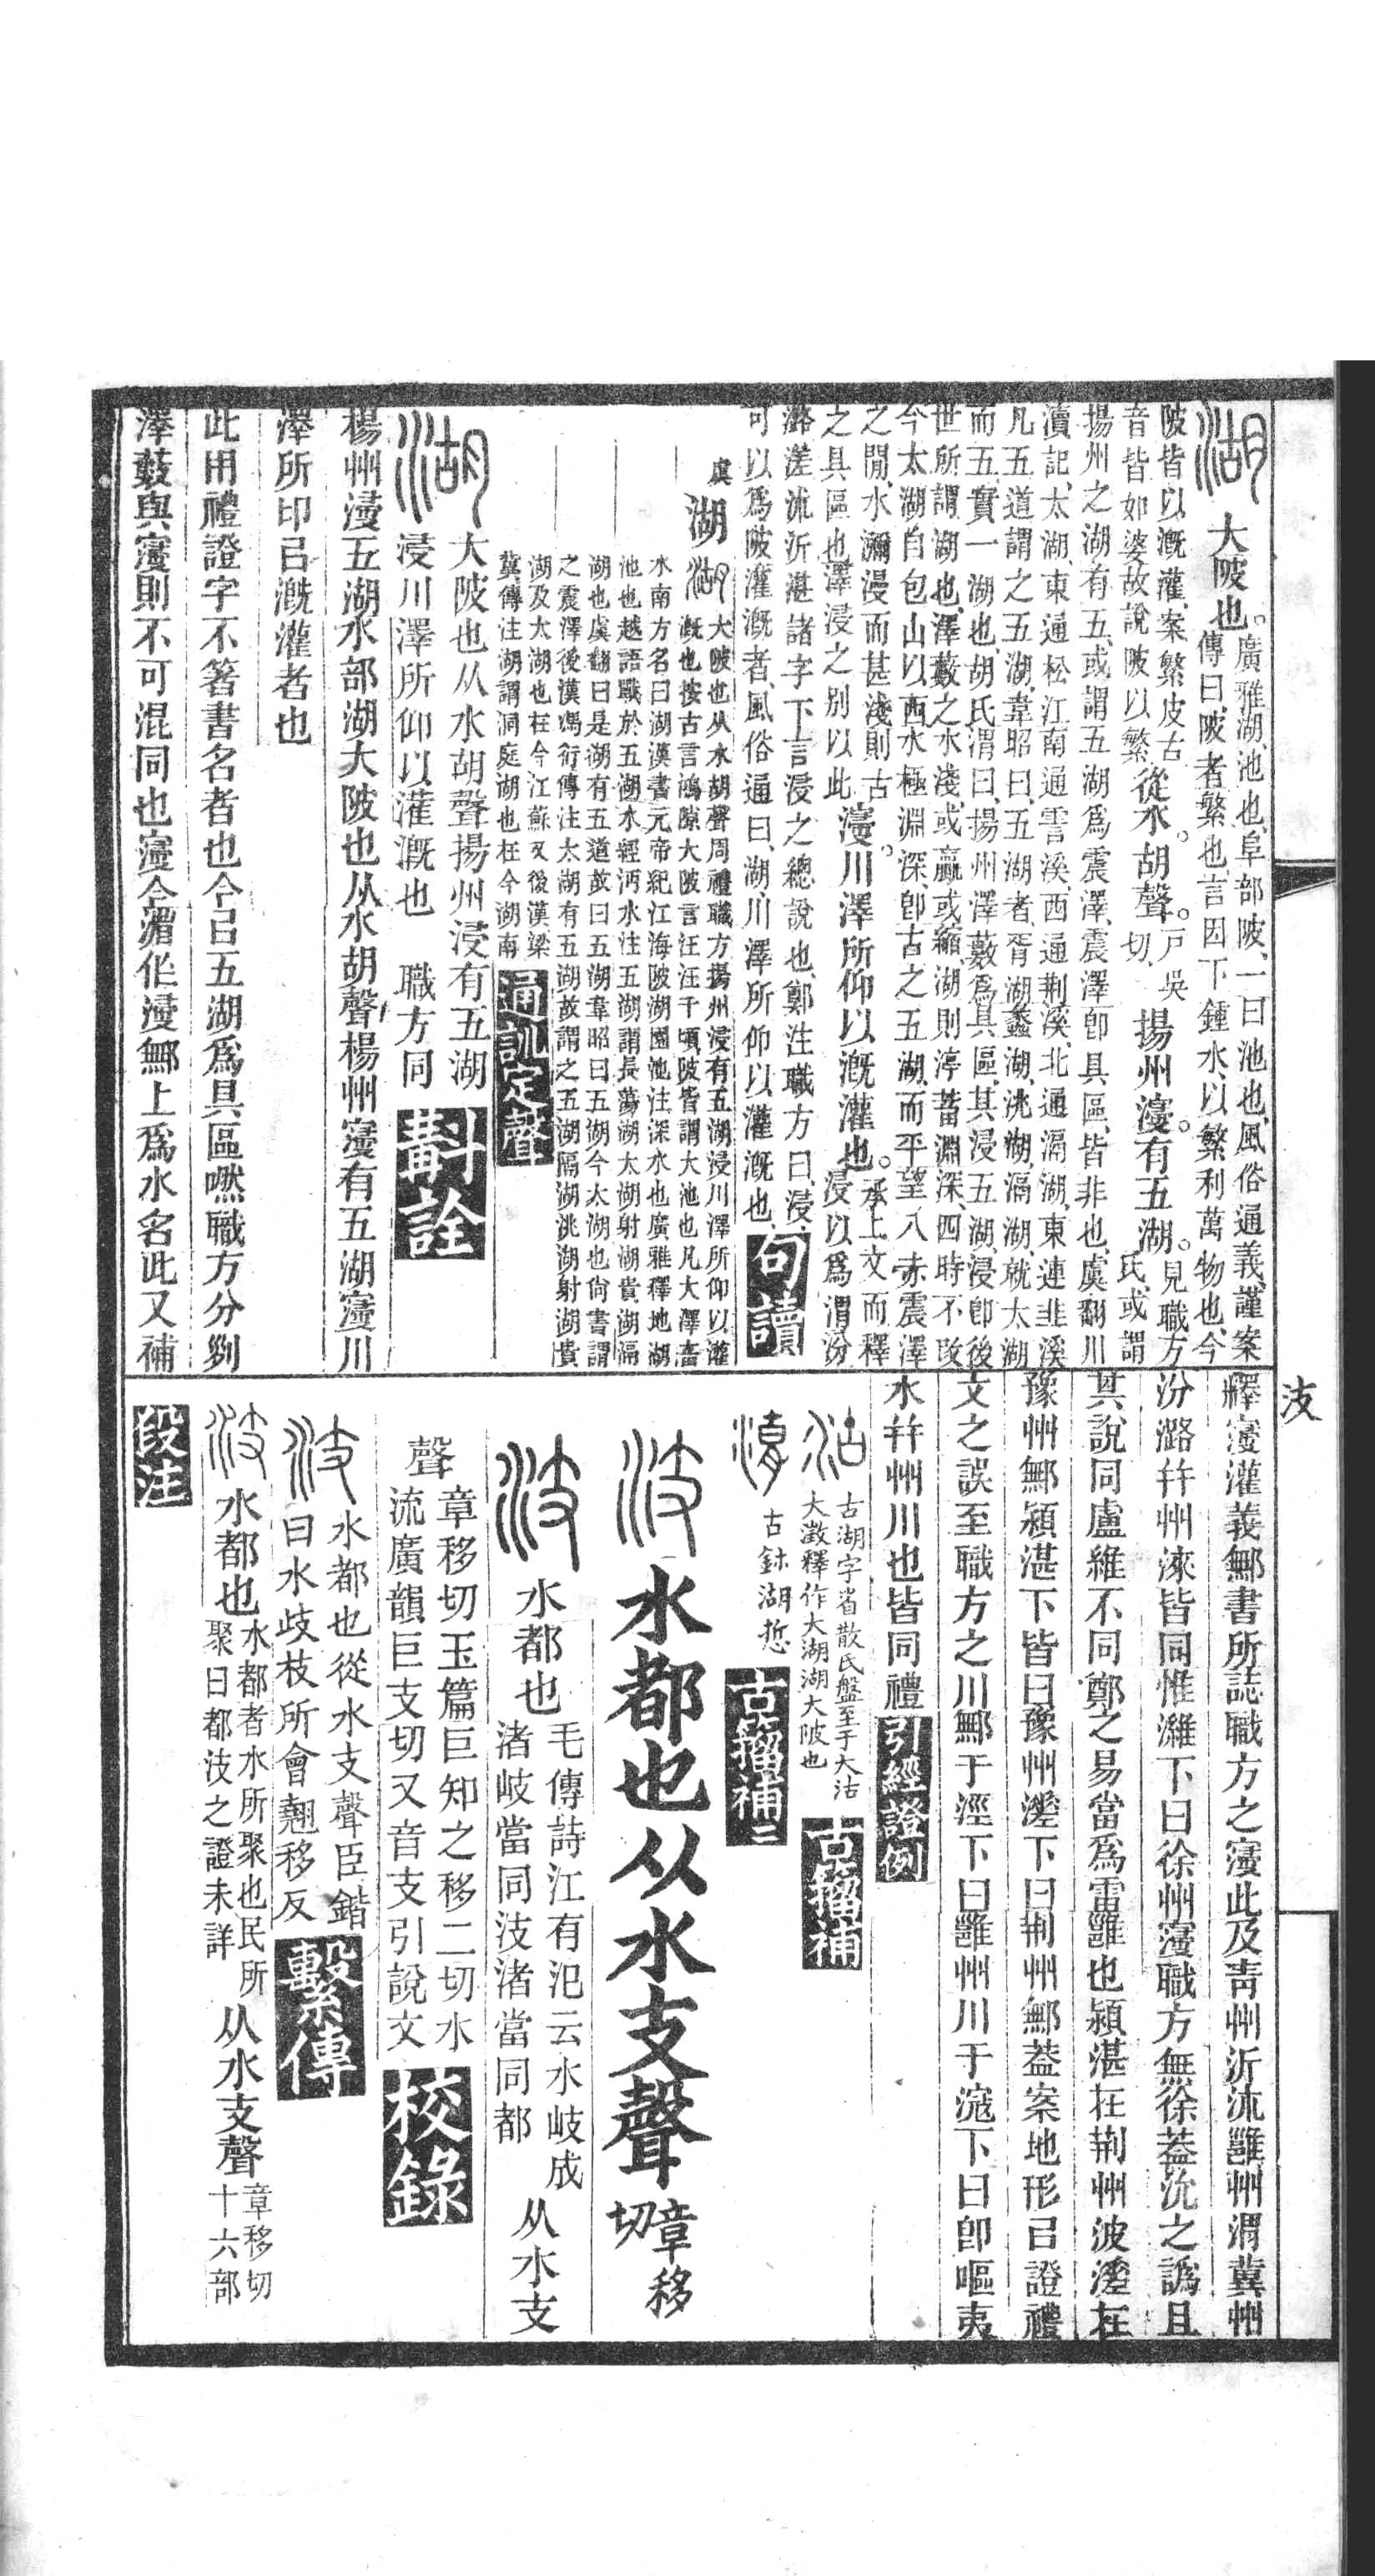 湖大陂也。廣雅湖池也阜部陂一曰池也風俗通義謹案
傳曰陂者繁也言因下鍾水以繁利萬物也今
陂皆以溉灌案繁皮古
音皆如婆故說陂以繁從水。胡聲。戶吳切揚州濅有五湖。見職方氏或謂
揚州之湖有五或謂五湖爲震澤震澤卽具區皆非也虞翻川
瀆記太湖東通松江南通霅溪西通荆溪北通滆湖東連韭溪
凡五道謂之五湖韋昭曰五湖者胥湖蠡湖洮湖滆湖就太湖
而五實一湖也胡氏渭曰揚州澤藪爲具區其浸五湖浸卽後
世所謂湖也澤藪之水淺或贏或縮湖則渟蓄淵深四時不改
今太湖自包山以西水極淵深卽古之五湖而平望八赤震澤
之閒水瀰漫而甚淺則古
之具區也澤浸之别以此濅川澤所仰以溉灌也。承上文而釋
浸以爲渭汾
潞溠沭沂湛諸字下言浸之總說也鄭注職方曰浸
可以爲陂灌溉者風俗通曰湖川澤所仰以灌溉也句讀
虞湖湖大陂也从水胡聲周禮職方揚州浸有五湖浸川澤所仰以灌
溉也按古言鴻隙大陂言汪汪千頃陂皆謂大池也凡大澤畜
水南方名曰湖漢書元帝紀江海陂湖園池注深水也廣雅釋地湖
池也越語戰於五湖水經沔水注五湖謂長蕩湖太湖射湖貴湖滆
湖也虞翻曰是湖有五道故曰五湖韋昭曰五湖今太湖也尙書謂
之震澤後漢馮衍傳注太湖有五湖故謂之五湖隔湖洮湖射湖貴
湖及太湖也在今江蘇又後漢梁
冀傳注湖謂洞庭湖也在今湖南通訓定聲
湖大陂也从水胡聲揚州浸有五湖
浸川澤所仰以灌溉也 職方同斠詮
楊州濅五湖水部湖大陂也从水胡聲楊州濅有五湖濅川
澤所卬㠯溉灌者也
此用禮證字不箸書名者也今㠯五湖爲具區嘫職方分別
澤藪與濅則不可混同也濅今湽作浸鄦上爲水名此又補
汥
釋濅灌義鄦書所誌職方之濅此及靑州沂沭雝州渭冀州
汾潞幷州淶皆同惟濰下曰徐州濅職方無徐葢沇之譌且
其說同盧維不同鄭之易當爲雷雝也潁湛在荆州波溠在
豫州鄦潁湛下皆曰豫州溠下曰荆州鄦葢案地形㠯證禮
文之誤至職方之川鄦于涇下曰雝州川于滱下曰卽嘔夷
水幷州川也皆同禮引經證例
沽古湖字省散氏盤至于大沽
大澂釋作大湖湖大陂也古籀補
古鉢湖悊古籀補二
汥水都也从水支聲章移切
汥水都也毛傳詩江有汜云水岐成
渚岐當同汥渚當同都从水支
聲章移切玉篇巨知之移二切水
流廣韻巨支切又音支引說文校錄
汥水都也從水支聲臣鍇
曰水歧枝所會翹移反繫傳
汥水都也水都者水所聚也民所
聚曰都汥之證未詳从水支聲章移切
十六部
段注